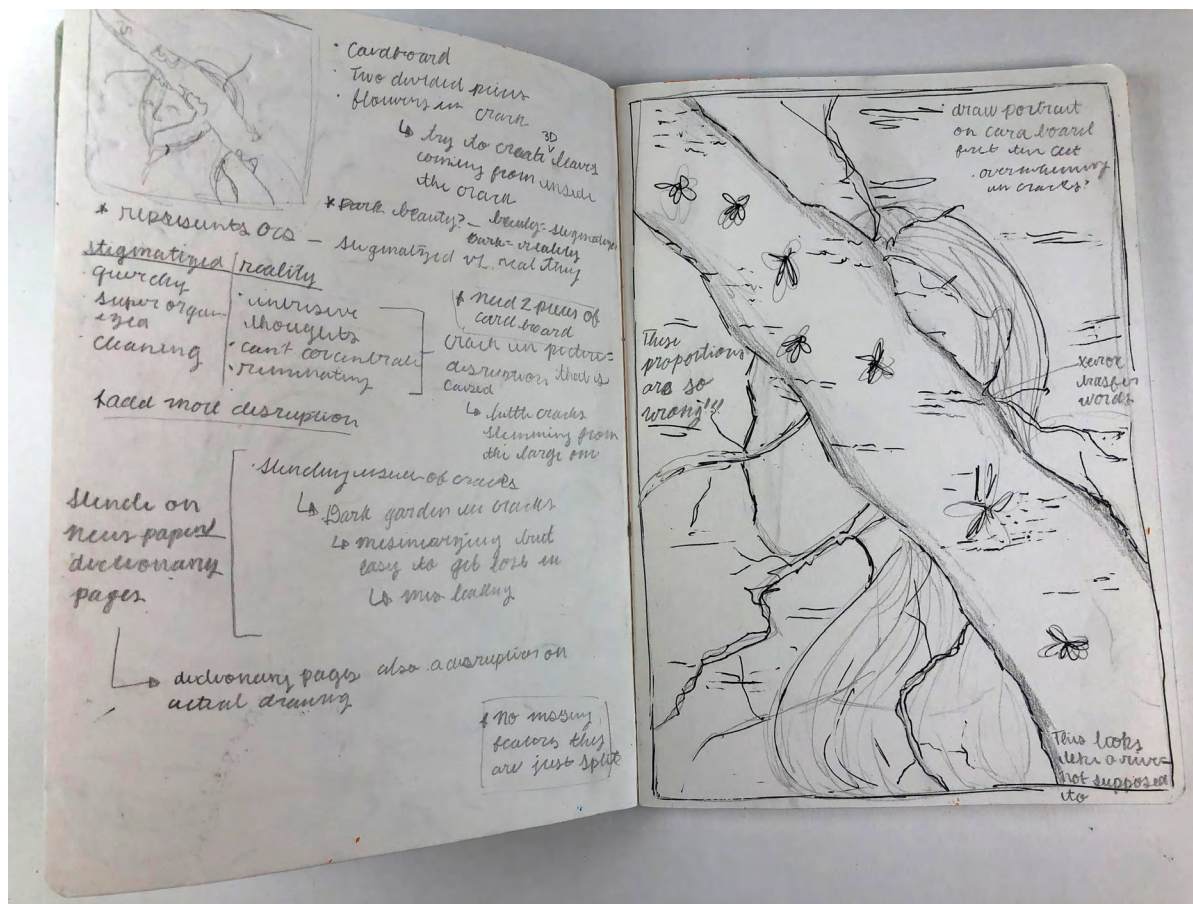 · Cardboard
· Two divided pieces
· flowers in crack
↳ try to create 3D leaves
coming from inside
the crack
* dark beauty? – beauty = stigmatized
dark = reality
* represents OCD – stigmatized vs. real thing
stigmatized | reality
· quircky
· super organ-
ized
· cleaning
· intrusive
thoughts
· can't concentrate
· ruminating
* need 2 pieces of
cardboard
crack in picture =
disruption that is
caused
↳ little cracks
stemming from
the large one
* add more disruption
Stencil on
news paper/
dictionary
pages
· Stencling inside of cracks
↳ Dark garden in cracks
↳ mesmorizing but
easy to get lost in
↳ mis leading
→ dictionary pages also a disruption on
actual drawing
* No missing
features they
are just split
· draw portrait
on card board
first then cut
· overwhelming
in cracks?
These
proportions
are so
wrong!!!
xerox
transfer
words
This looks
like a river
not supposed
to